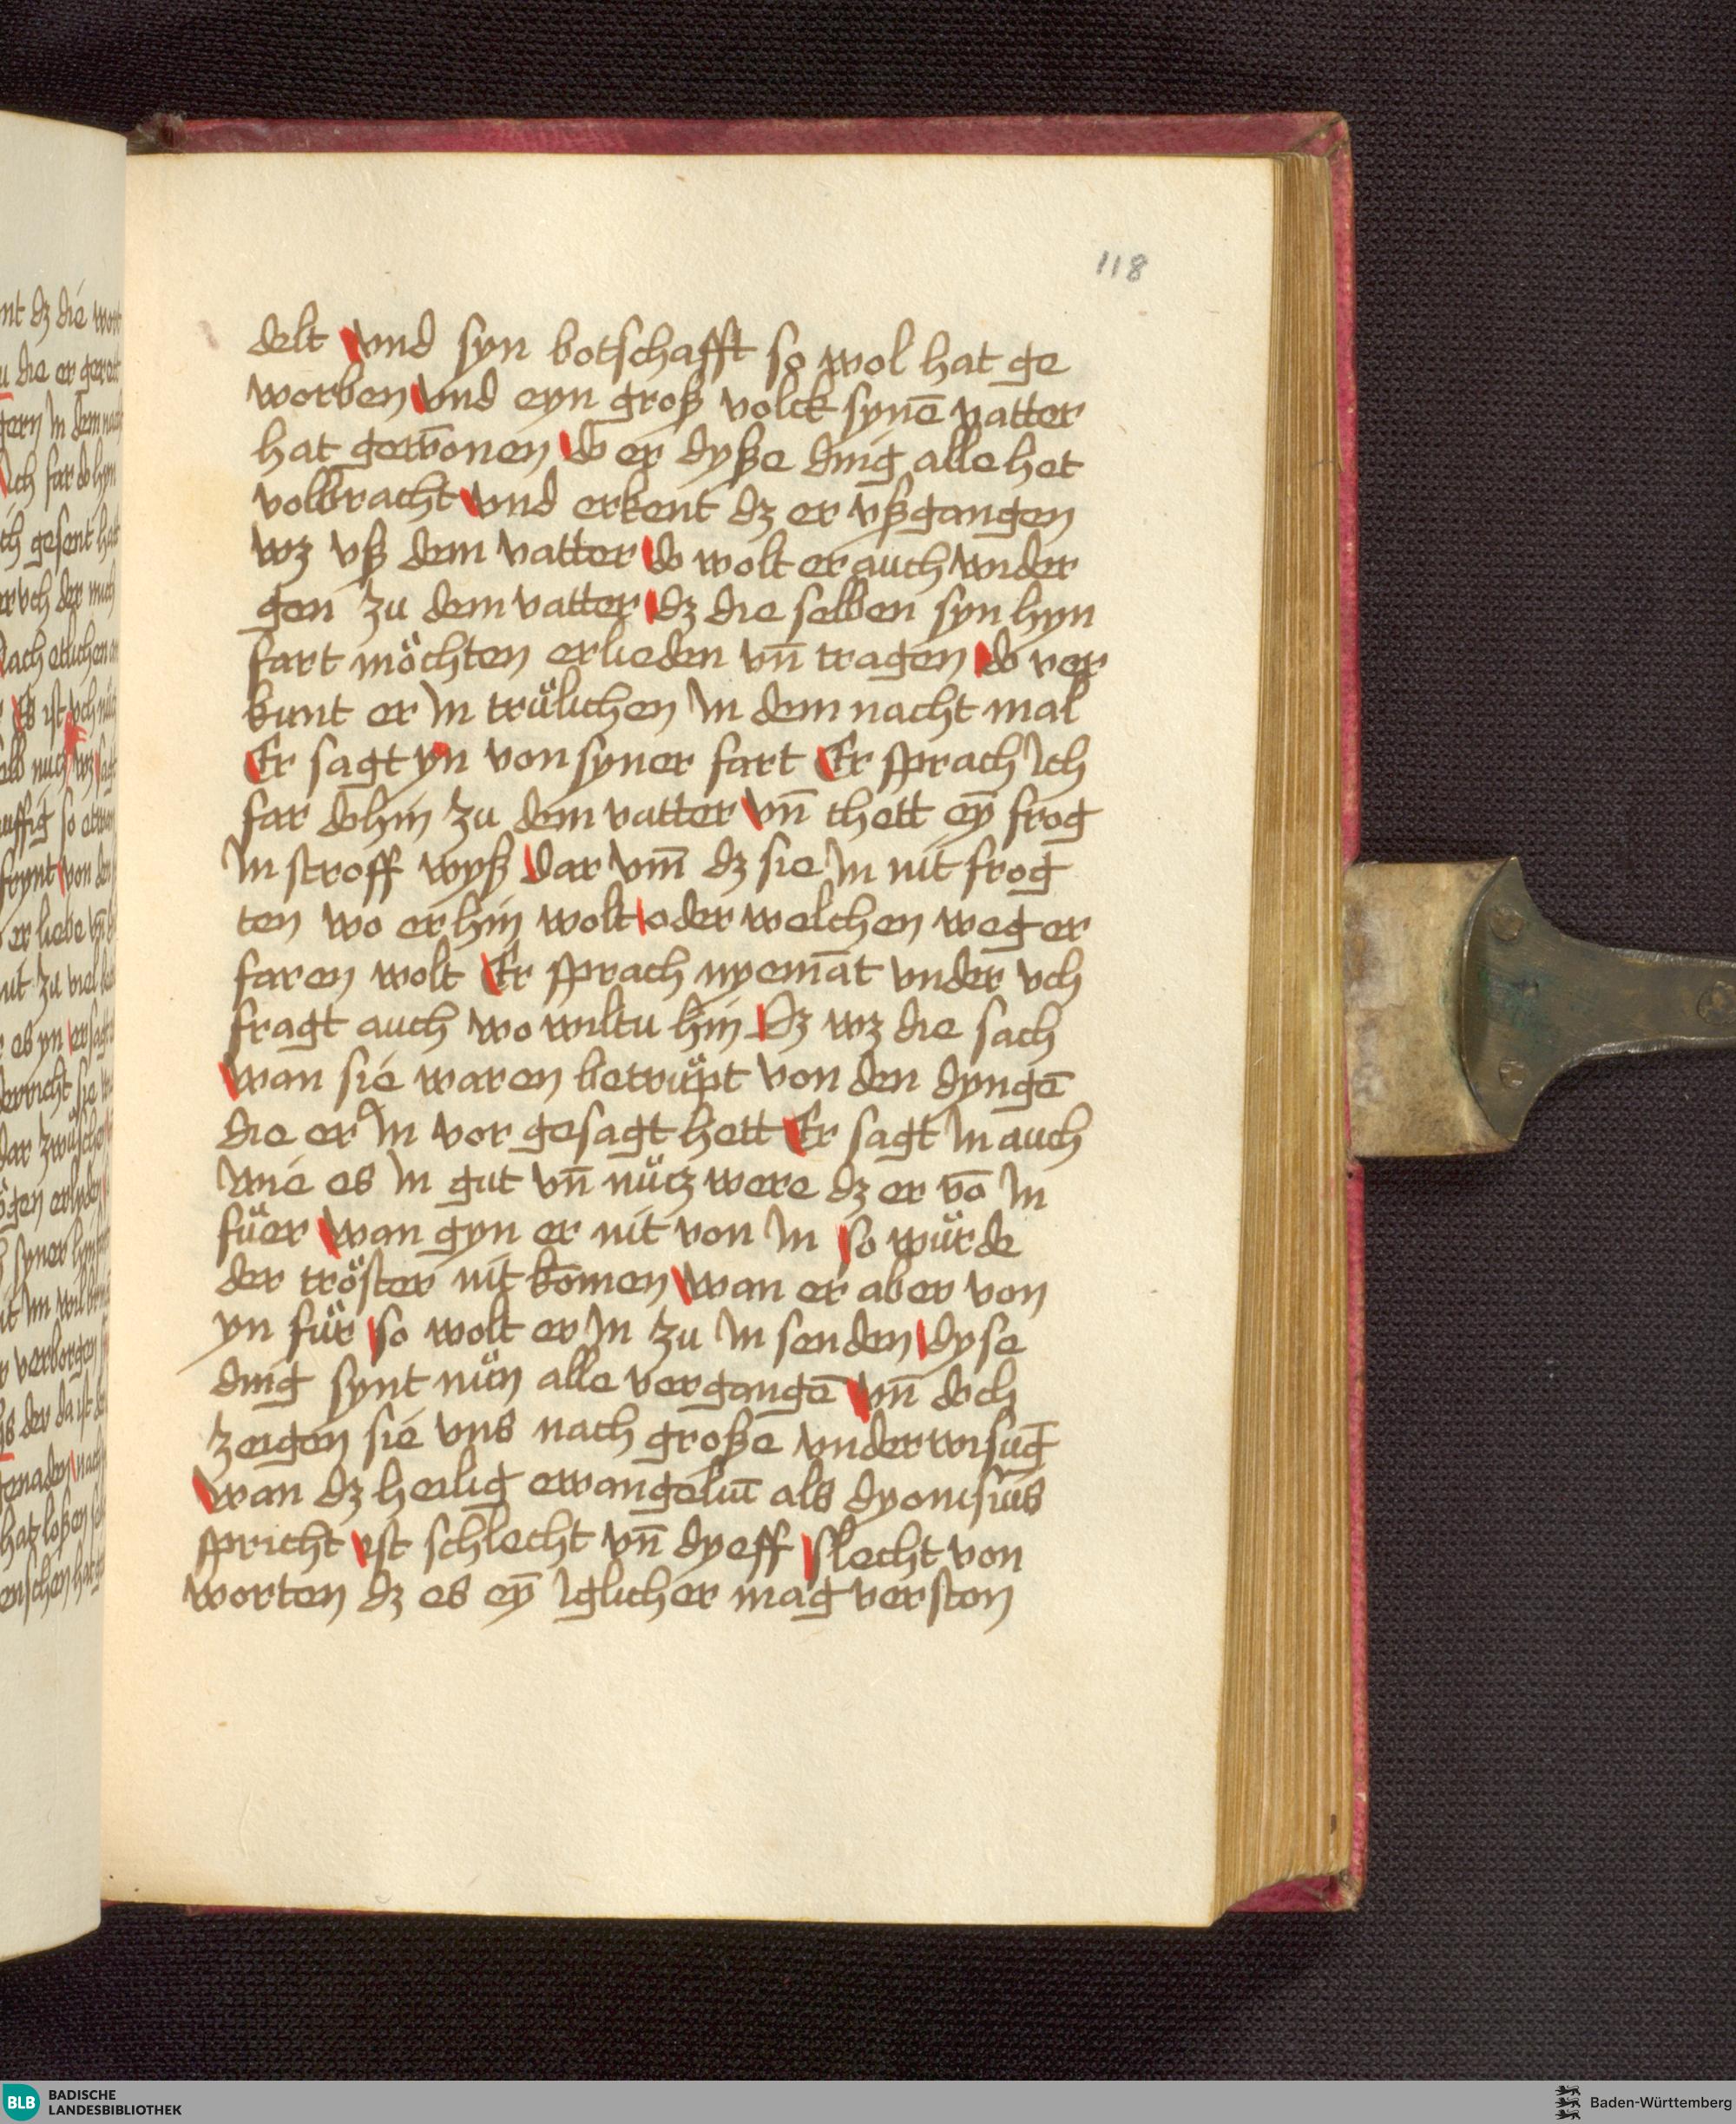 118
delt vnd syn botschafft so wol hat ge
worben vnd eyn groß volck synē vatter
hat gew̄onen do er dyße ding alle het
volbracht vnd erkent dz er vßgangen
wz vß dem vatter do wolt er auch wider
gen zu dem vatter dz die selben syn hyn
fart möchten erlieden vn̄ tragen do ver
kunt er In trülichen In dem nacht mal
Er sagt yn von syner fart Er sprach Ich
far dohin zu dem vatter vn̄ thett eȳ frog
In stroff wyß Dar vm̄ dz sie In nit frog
ten wo er hin wolt oder welchen weg er
faren wolt Er sprach nyemāt vnder vch
fragt auch wo wiltu hin Dz wz die sach
wan sie waren betrüpt von den dyngē
die er In vor gesagt hett Er sagt In auch
wie es In gut vn̄ nütz were dz er vō In
füer wan gyn er nit von In so würde
der tröster nit komen wan er aber von
yn für so wolt er In zu In senden dyse
ding synt nün alle vergangē vn̄ doch
zeigen sie vns nach große vnderwisūg
wan dz heilig ewangeliū als dyonisius
spricht ist schlecht vn̄ dyeff slecht von
worten dz es eȳ Iglicher mag verston
BLB BADISCHE
LANDESBIBLIOTHEK
Baden-Württemberg